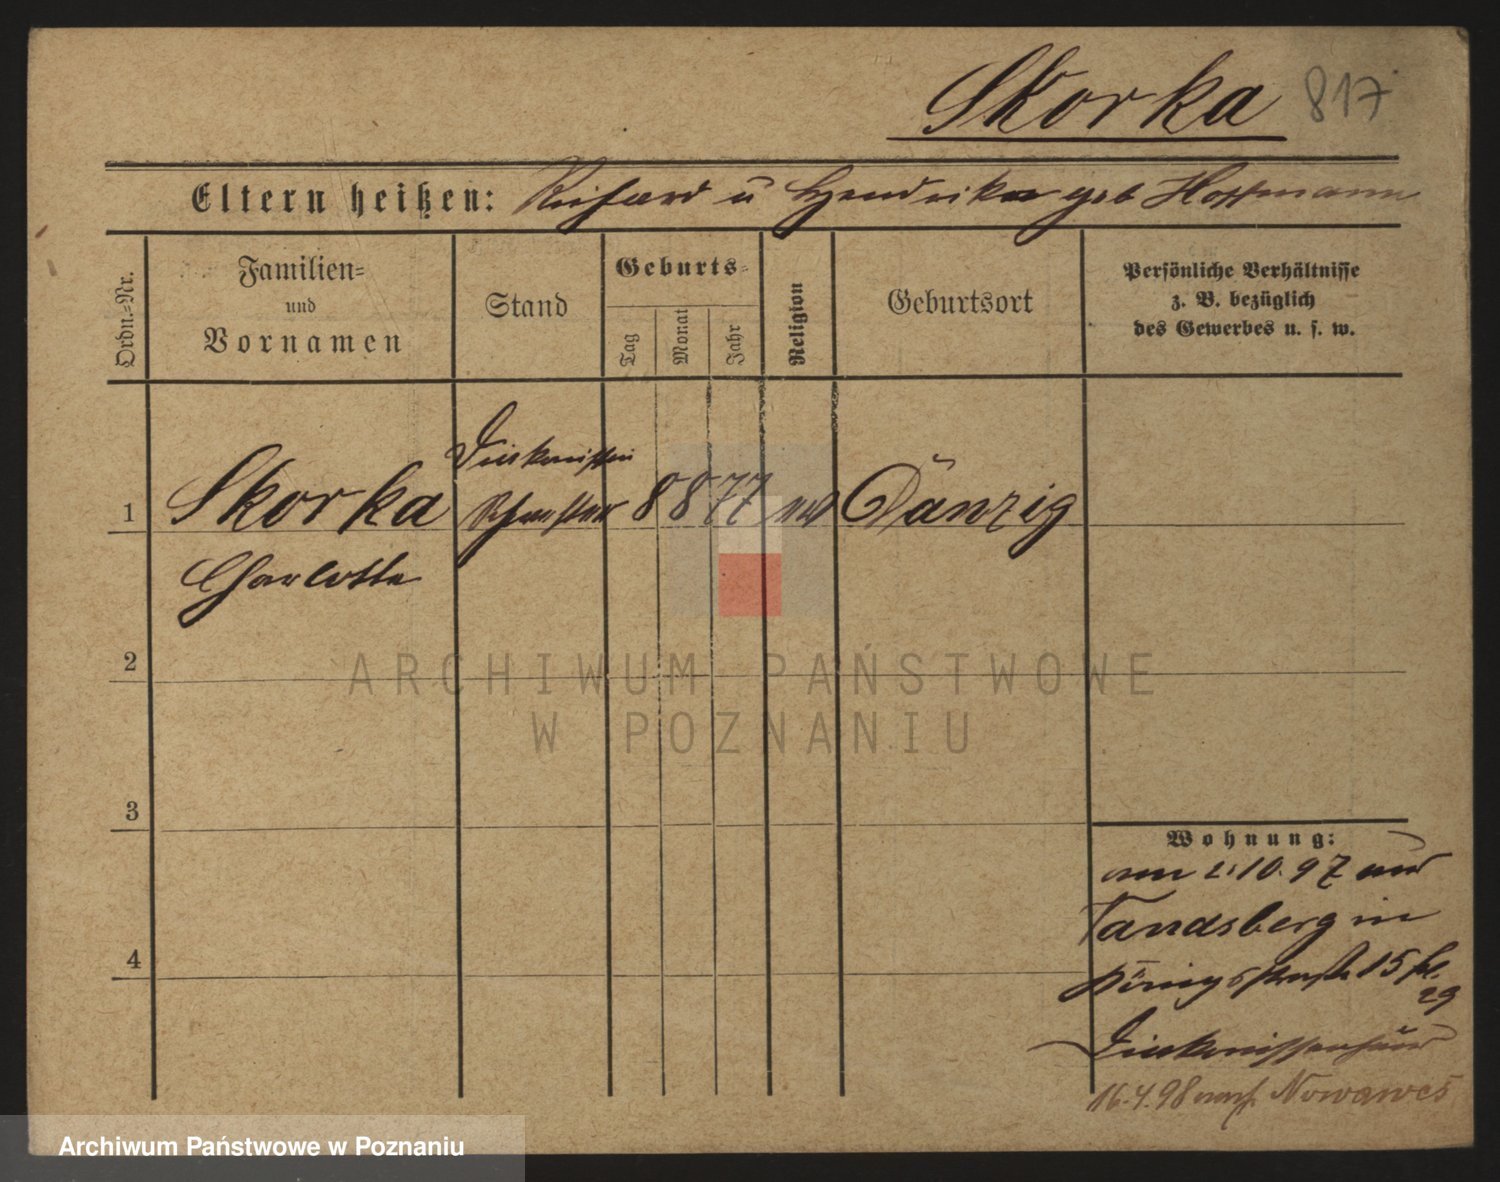 Skorka 817
Eltern heißen: Richard u Hendrika geb Hoffmann
Ordn.-Nr.
Familien-
und
Vornamen
Stand
Geburts-
Tag
Monat
Jahr
Religion
Geburtsort
Persönliche Verhältnisse
z. B. bezüglich
des Gewerbes u. s. w.
Diakonissen
1 Skorka Schwester 8 8 77 ev Danzig
Charlotte
2
ARCHIWUM PAŃSTWOWE
W POZNANIU
3
Wohnung:
am 2.10.97 aus
Landsberg in
Königsstraße 15
29
Diakonissenhaus
4
16.4.98 nach Nowawes
Archiwum Państwowe w Poznaniu